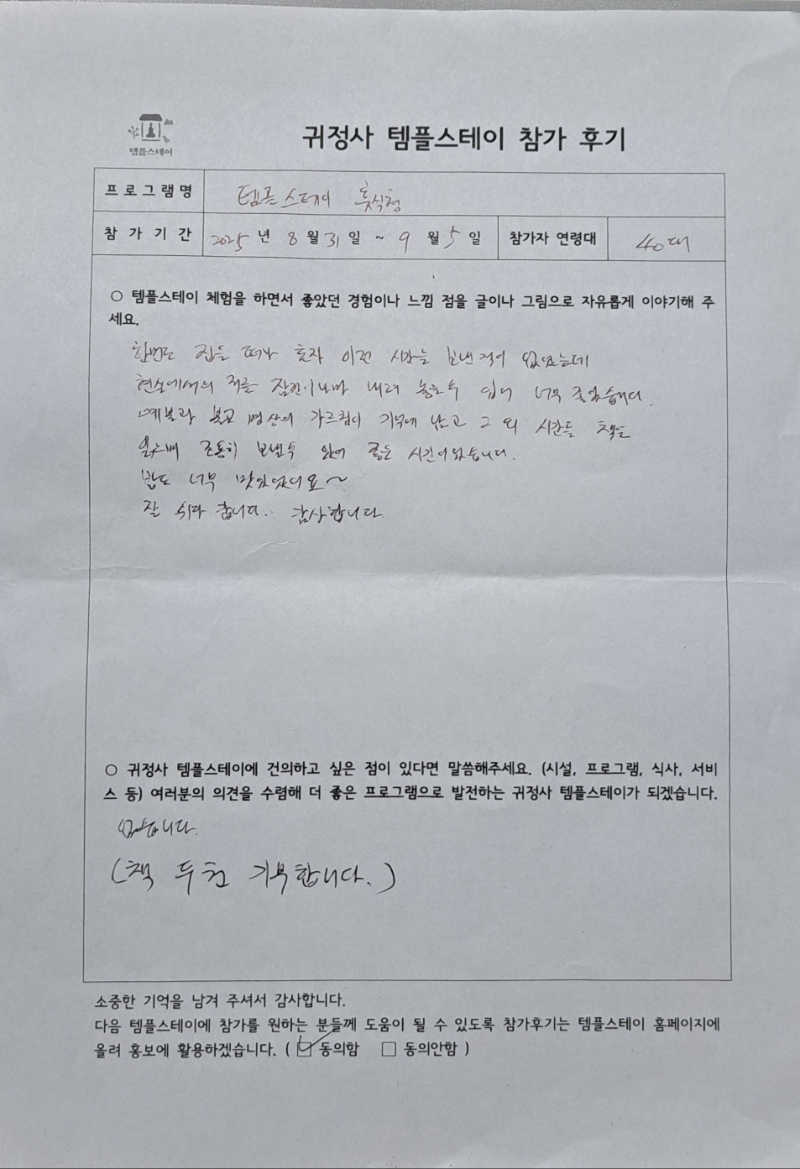 템플스테이
귀정사 템플스테이 참가 후기
프로그램명 템플스테이 휴식형
참 가 기 간 2025 년 8 월 31 일 ~ 9 월 5 일 참가자 연령대 40대
○ 템플스테이 체험을 하면서 좋았던 경험이나 느낌 점을 글이나 그림으로 자유롭게 이야기해 주
세요.
한번도 집을 떠나 혼자 이런 시간을 보낸적이 없었는데
현실에서의 저를 잠깐이나마 내려 놓을수 있어 너무 좋았습니다.
예불과 불교 명상의 가르침이 기억에 남고 그 외 시간을 책을
읽으며 조용히 보낼수 있어 좋은 시간이었습니다.
밥도 너무 맛있었어요~
잘 쉬다 갑니다.. 감사합니다.
○ 귀정사 템플스테이에 건의하고 싶은 점이 있다면 말씀해주세요. (시설, 프로그램, 식사, 서비
스 등) 여러분의 의견을 수렴해 더 좋은 프로그램으로 발전하는 귀정사 템플스테이가 되겠습니다.
없습니다.
(책 두권 기부합니다.)
소중한 기억을 남겨 주셔서 감사합니다.
다음 템플스테이에 참가를 원하는 분들께 도움이 될 수 있도록 참가후기는 템플스테이 홈페이지에
올려 홍보에 활용하겠습니다. ( ☑ 동의함 □ 동의안함 )